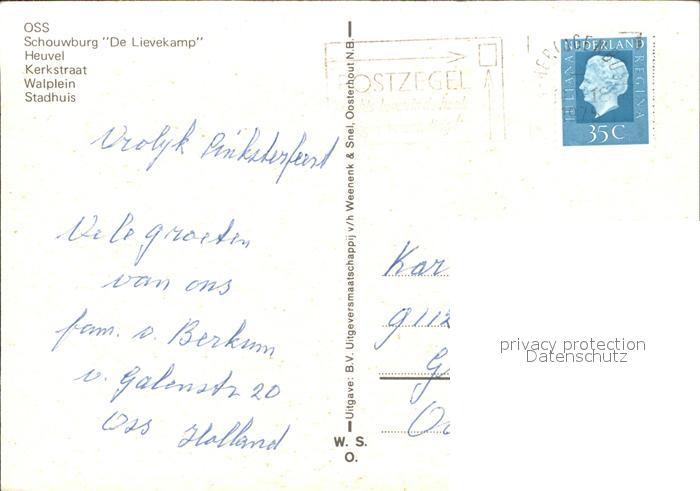 OSS
Schouwburg "De Lievekamp"
Heuvel
Kerkstraat
Walplein
Stadhuis
Vrolijk Pinksterfeest
Vele groeten
van ons
fam. v. Berkum
v. Galenstr 20
Oss Holland
Uitgave: B.V. Uitgeversmaatschappij v/h Weenenk & Snel, Oosterhout N.B.
W. S.
O.
POSTZEGEL
NEDERLAND
JULIANA
REGINA
35C
Kar
9112
G
privacy protection
Datenschutz